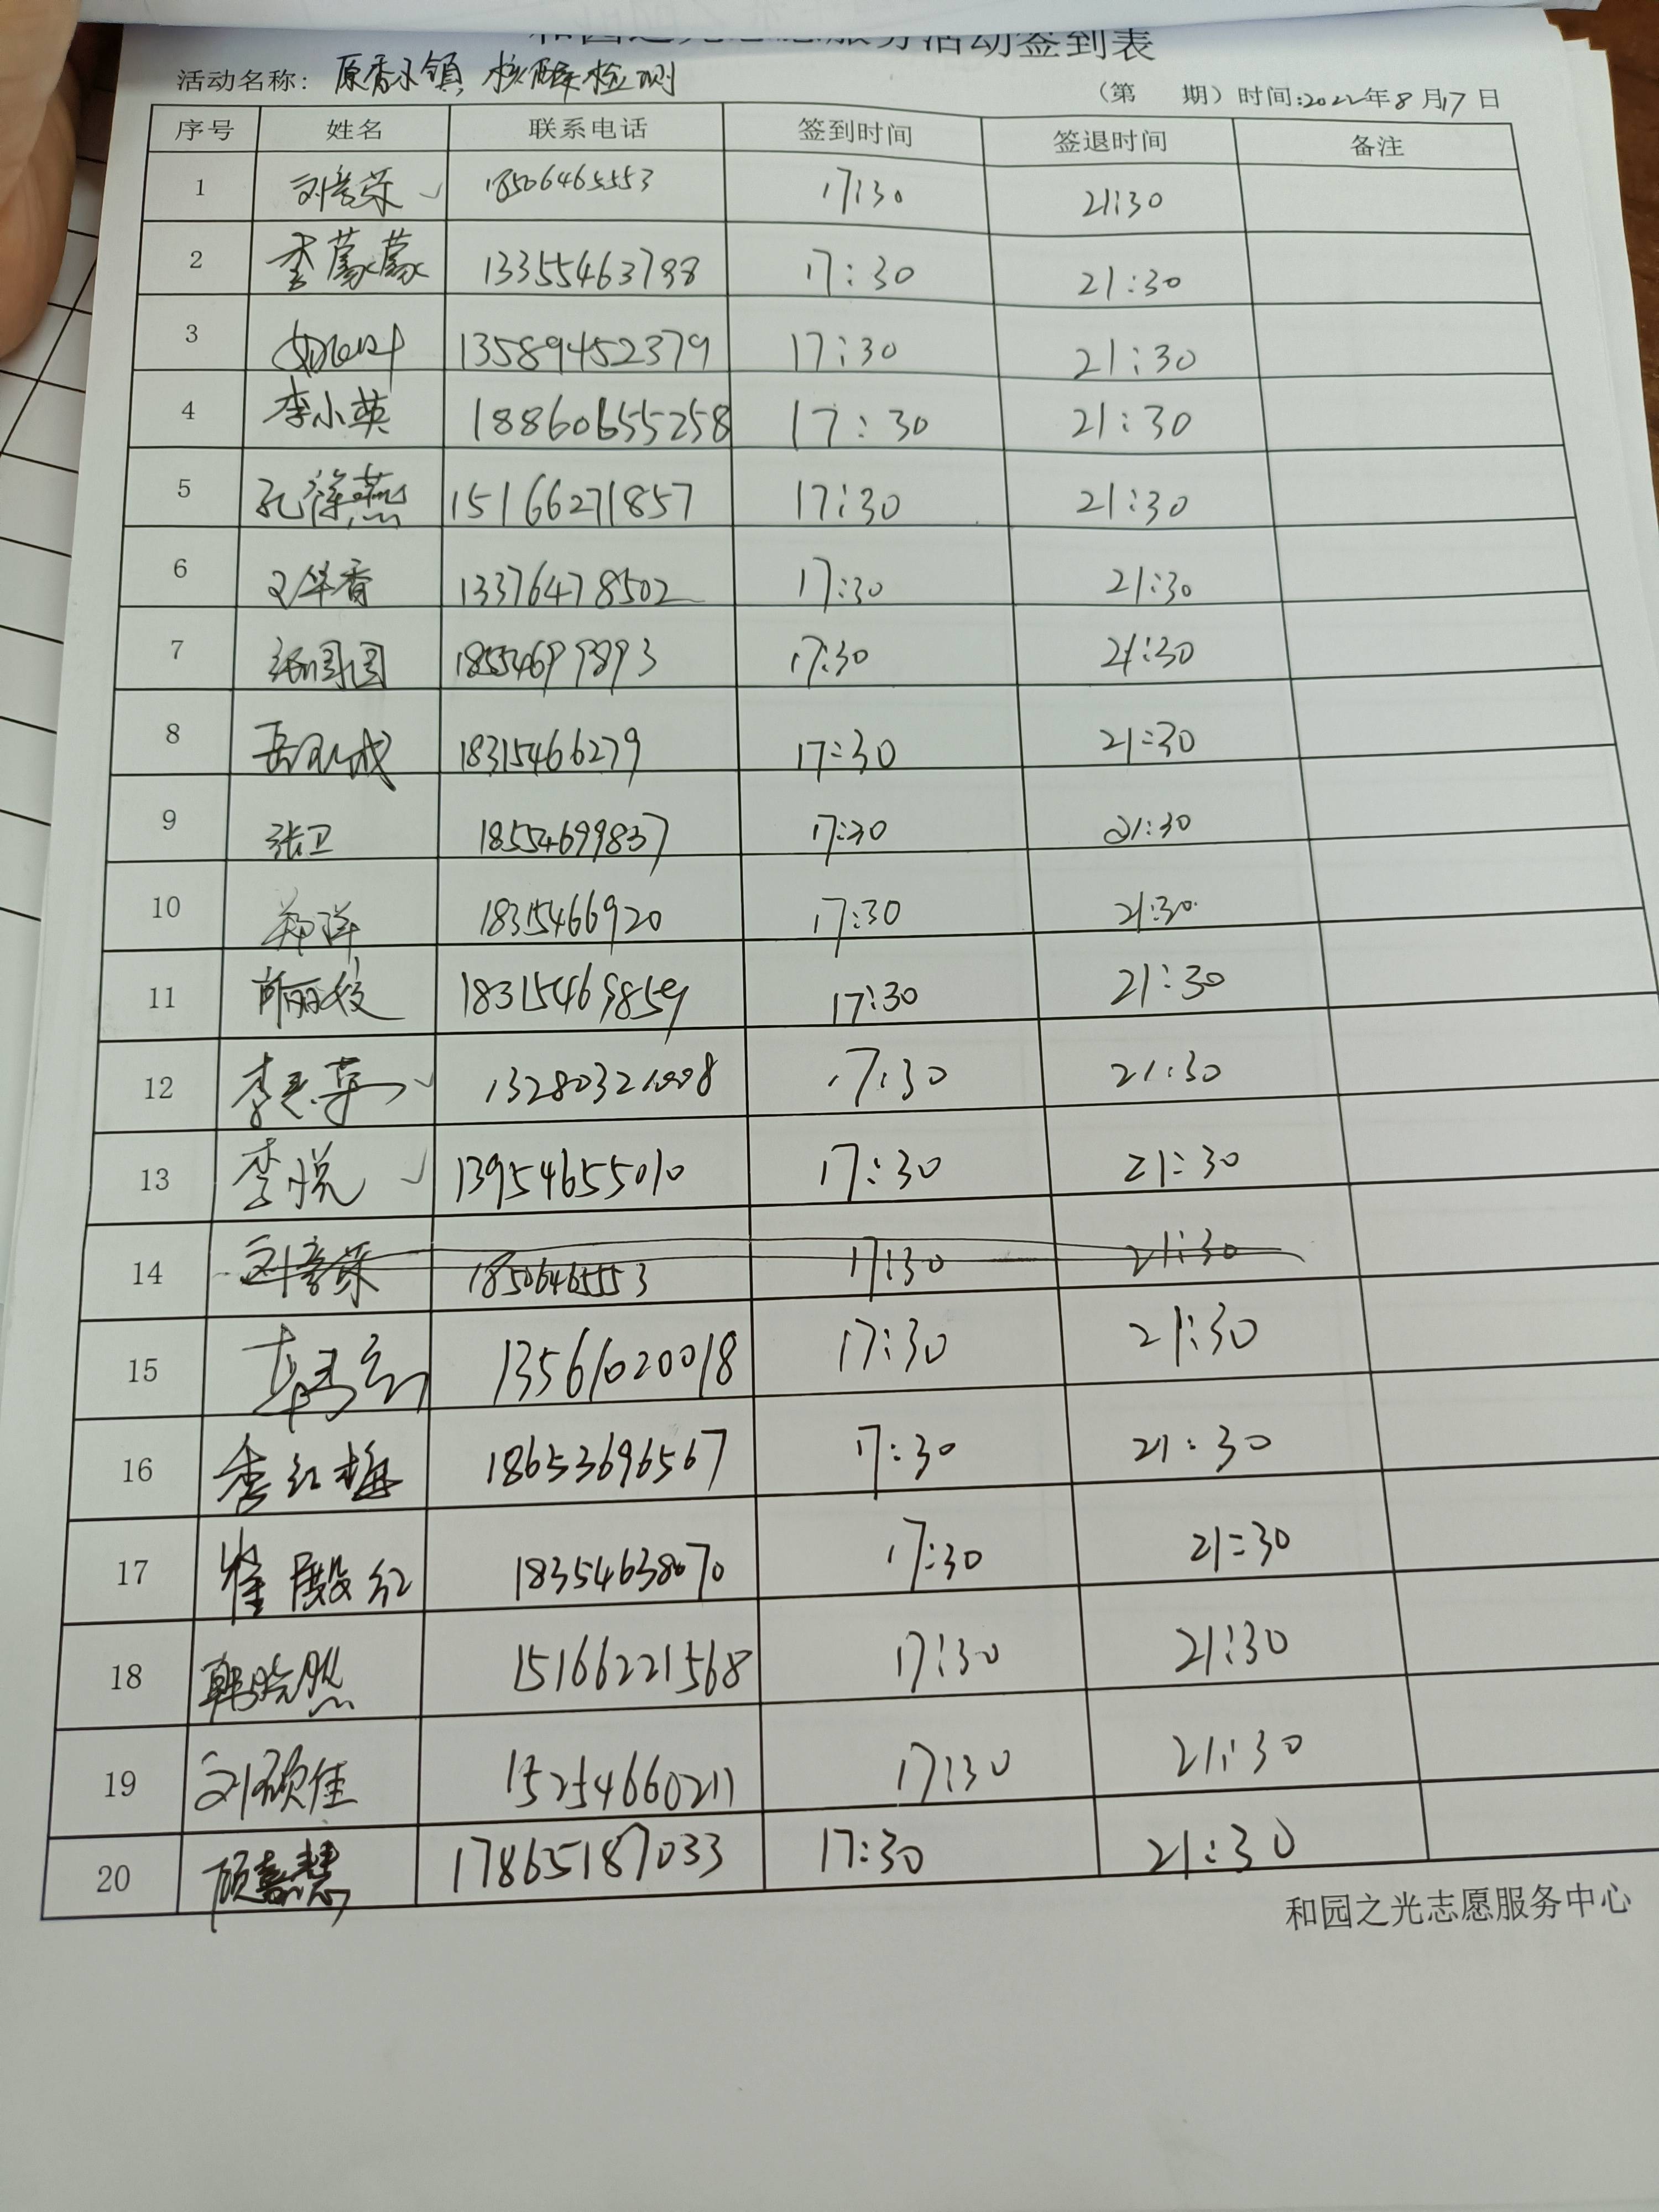 和园之光志愿服务活动签到表
活动名称: 原香小镇 核酸检测 (第 期) 时间:2022年8月17日
序号 姓名 联系电话 签到时间 签退时间 备注
1 刘彦荣 18506465553 17:30 21:30
2 李蒙蒙 13355463798 17:30 21:30
3 13589452379 17:30 21:30
4 李小英 18860655258 17:30 21:30
5 孔祥燕 15166271857 17:30 21:30
6 13376478502 17:30 21:30
7 18554699893 17:30 21:30
8 18315466279 17:30 21:30
9 张卫 18554699837 17:30 21:30
10 郑洋 18315466920 17:30 21:30
11 18315469859 17:30 21:30
12 17:30 21:30
13 李悦 13954655010 17:30 21:30
14 刘彦荣 18506465553 17:30 21:30
15 13561020018 17:30 21:30
16 李红梅 18653696567 17:30 21:30
17 崔殿红 18354638070 17:30 21:30
18 韩晓然 15166221568 17:30 21:30
19 刘硕佳 15254660211 17:30 21:30
20 顾嘉慧 17865187033 17:30 21:30
和园之光志愿服务中心